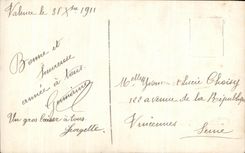 Valence le 31 Xbre 1911
Bonne et
heureuse
année à tous
Germaine
Un gros baiser à tous
Georgette
Melles Yvonne et Lucie Choisy
121 avenue de la République
Vincennes
Seine